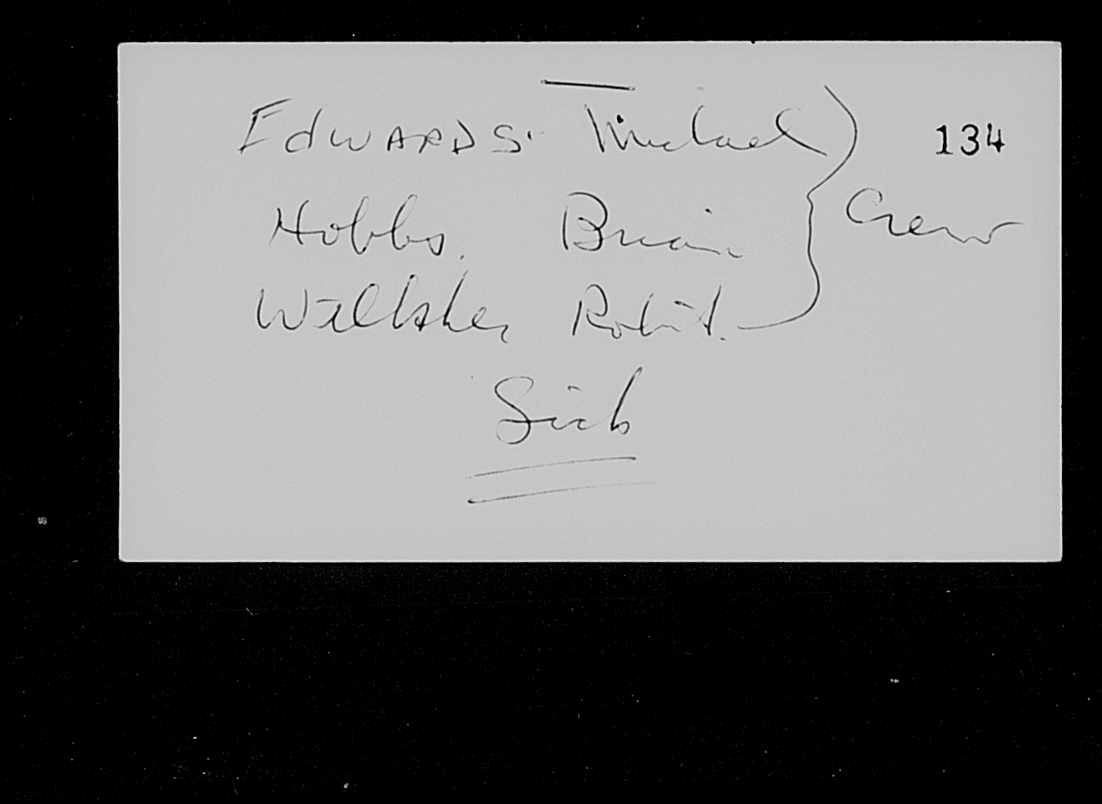 EDWARDS. Michael 134
Hobbs. Brian } Crew
Robert.
Sick